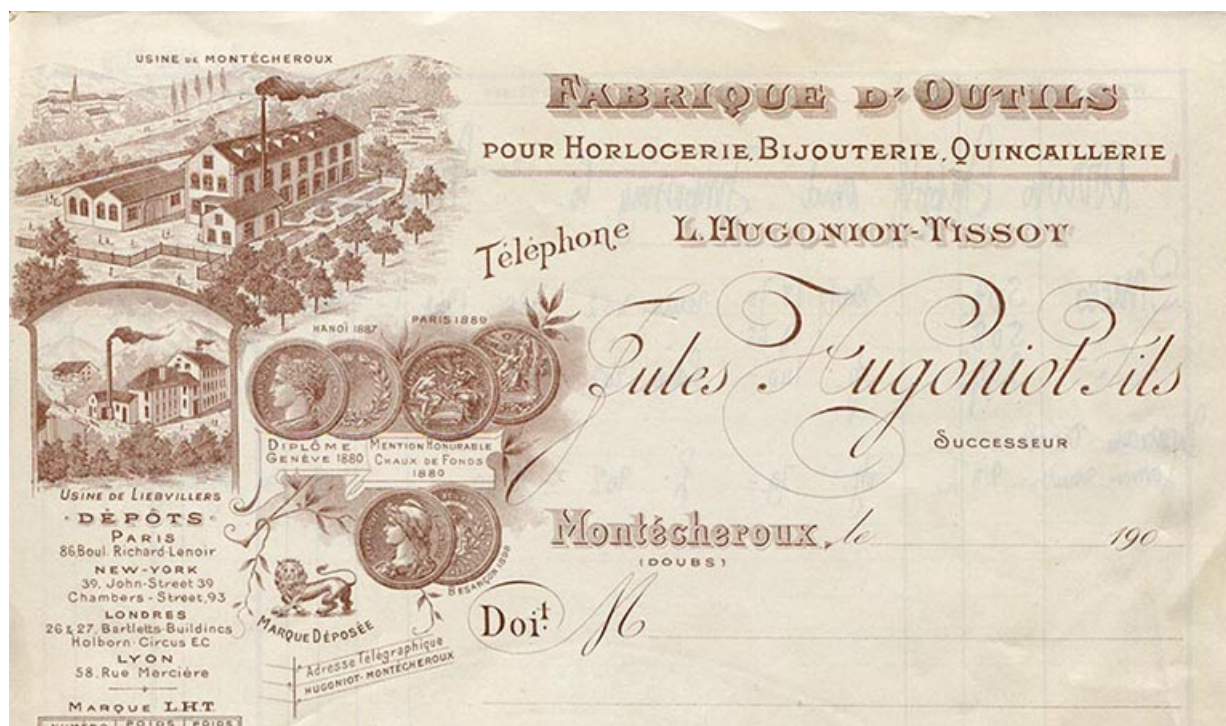 USINE DE MONTÉCHEROUX
FABRIQUE D'OUTILS
POUR HORLOGERIE, BIJOUTERIE, QUINCAILLERIE
Téléphone
L. HUGONIOT-TISSOT
Jules Hugoniot Fils
SUCCESSEUR
HANOÏ 1887
PARIS 1889
DIPLÔME
GENÈVE 1880
MENTION HONORABLE
CHAUX DE FONDS
1880
BESANÇON
USINE DE LIEBVILLERS
DÉPÔTS
PARIS
86, Boul. Richard-Lenoir
NEW-YORK
39, John-Street 39
Chambers-Street, 93
LONDRES
26 & 27, Bartletts-Buildings
Holborn-Circus E.C
LYON
58, Rue Mercière
MARQUE LHT
NUMÉRO POIDS POIDS
MARQUE DÉPOSÉE
Adresse Télégraphique
HUGONIOT-MONTÉCHEROUX
Montécheroux, le 190
(DOUBS)
Doit M